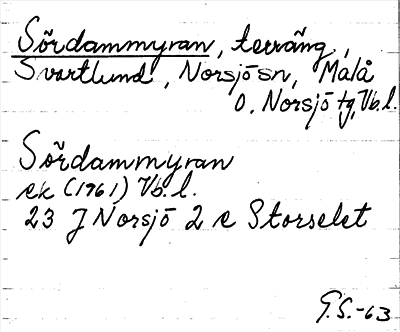 Sördammyran, terräng,
Svartlund, Norsjö sn, Malå
o. Norsjö tg, Vb.l.
Sördammyran
ek (1961) Vb.l.
23 J Norsjö 2 e Storselet
G.S.-63